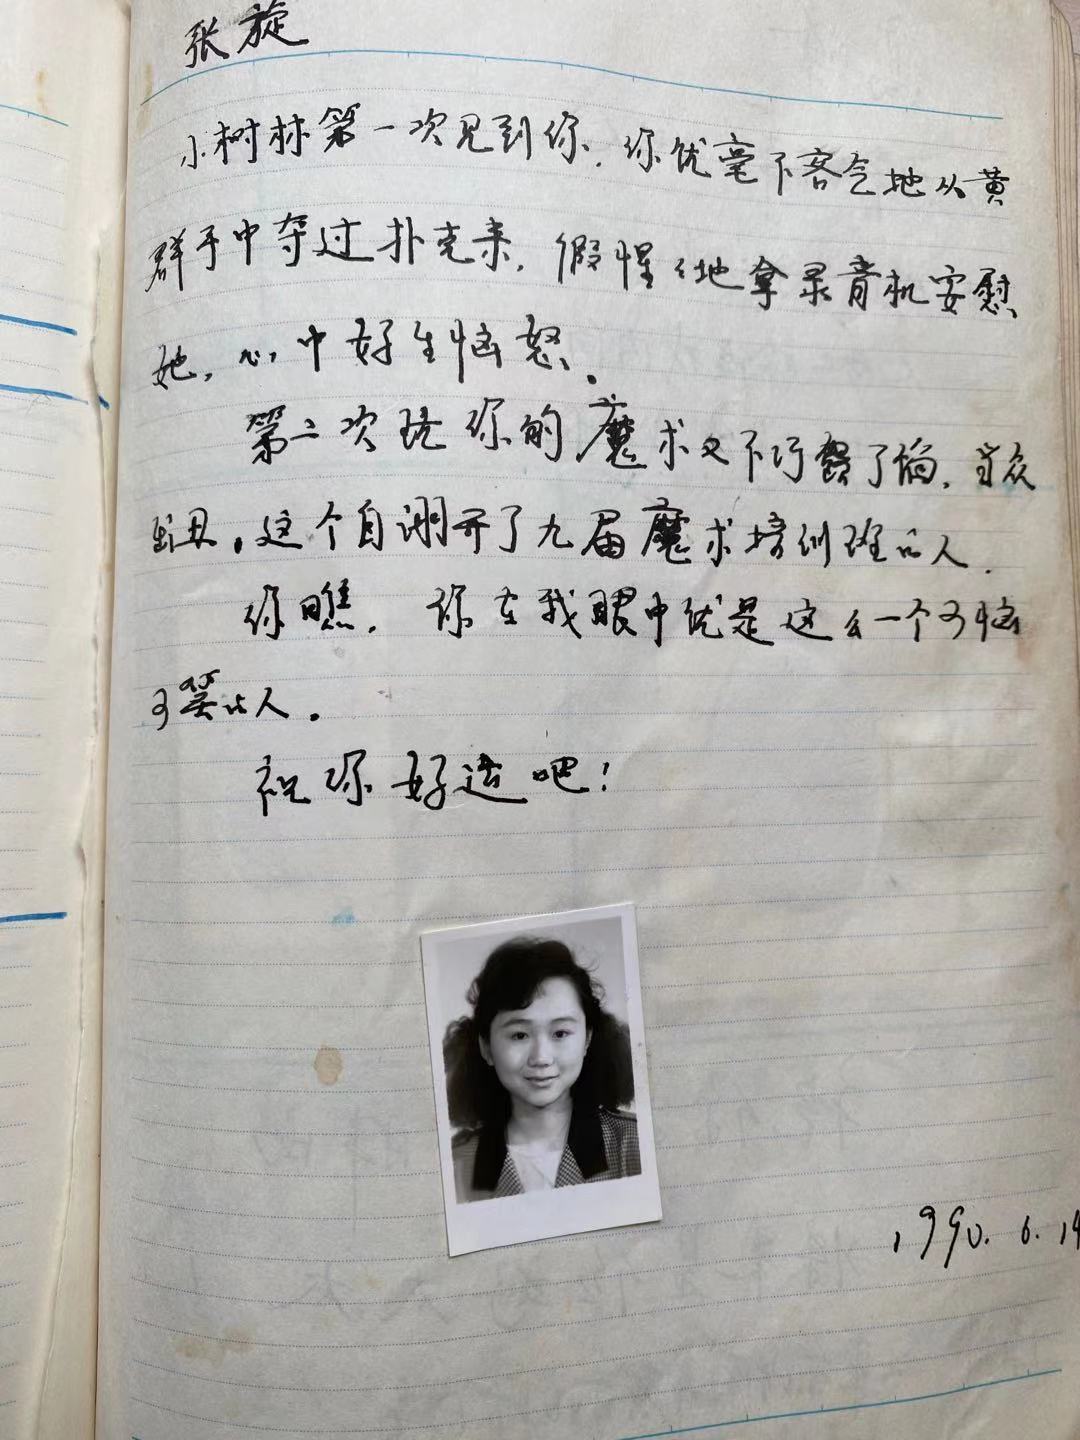 张旋
小树林第一次见到你，你优毫不客气地从黄
群手中夺过扑克来，假惺々地拿录音机安慰
她，心中好生恼怒。
第二次玩你的魔术又不巧露了馅，当众
出丑，这个自诩开了九届魔术培训班的人．
你瞧，你在我眼中优是这么一个可恼
可笑的人。
祝你好运吧！
1990.6.14